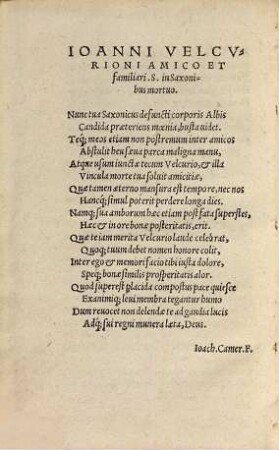 IOANNI VELCV-
RIONI AMICO ET
familiari .S. in Saxoni-
bus mortuo.
Nunc tua Saxonicus defuncti corporis Albis
Candida præteriens mœnia, busta uidet.
Teq; meos etiam non postremum inter amicos
Abstulit heu sæua parca maligna manu,
Atque usum iunctæ tecum Velcurio, & illa
Vincula morte tua soluit amicitiæ,
Quæ tamen æterno mansura est tempore, nec nos
Hancq; simul poterit perdere longa dies.
Namq; sua amborum hæc etiam post fata superstes,
Hæc & in ore bonæ posteritatis, erit.
Quæ te iam merita Velcurio laude celebrat,
Quoq; tuum debet nomen honore colit,
Inter ego & memor ifacio tibi iusta dolore,
Speq; bonæ similis prosperitatis alor.
Quod superest placida compostus pace quiesce
Exanimiq; leui membra tegantur humo
Dum reuocet non delendæ te ad gaudia lucis
Adq; sui regni munera læta, Deus.
Ioach. Camer. F.